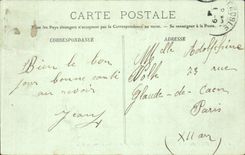 CARTE POSTALE
Tous les Pays étrangers n'acceptent pas la Correspondance au recto. — Se renseigner à la Poste.
CORRESPONDANCE
ADRESSE
Bien le bon
jour bonne santé
au revoir
Jean
Melle Adolphine
Wolk
23 rue
Claude-de-Caen
Paris
(XII arr)